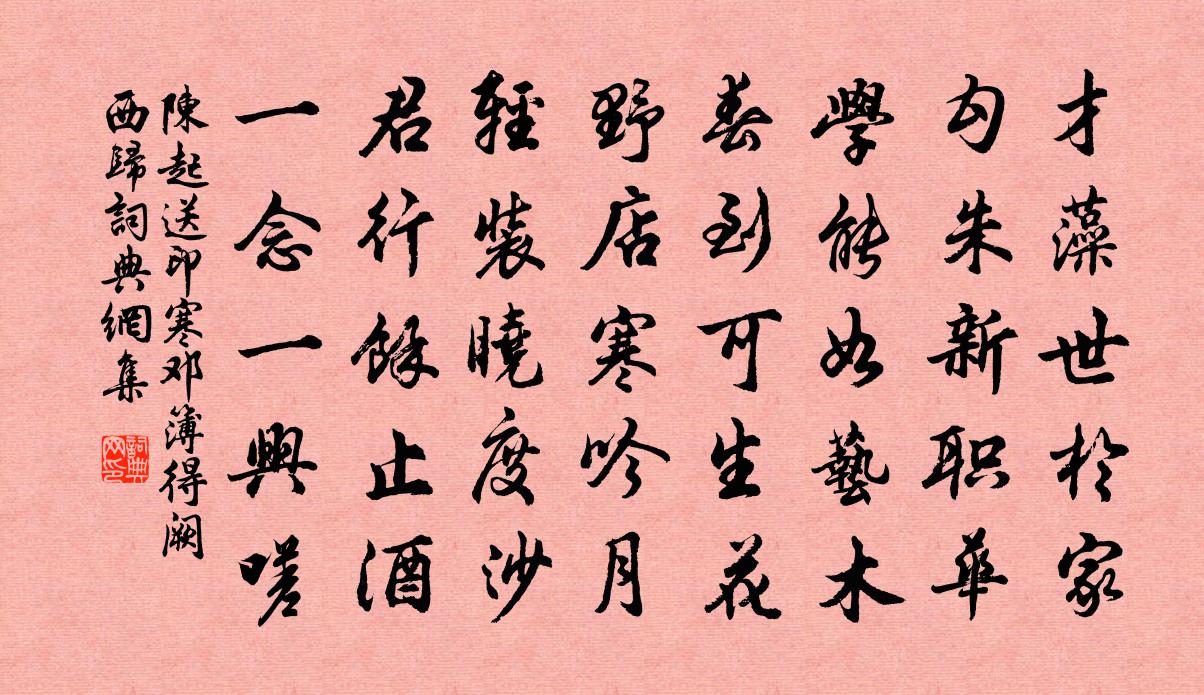 才藻世於家
勾朱新职華
學能如藝木
春到可生花
野店寒吟月
輕裝曉度沙
君行餘止酒
一念一興嗟
陳起送印寒邓薄得阙
西歸詞典網集
詞典網印